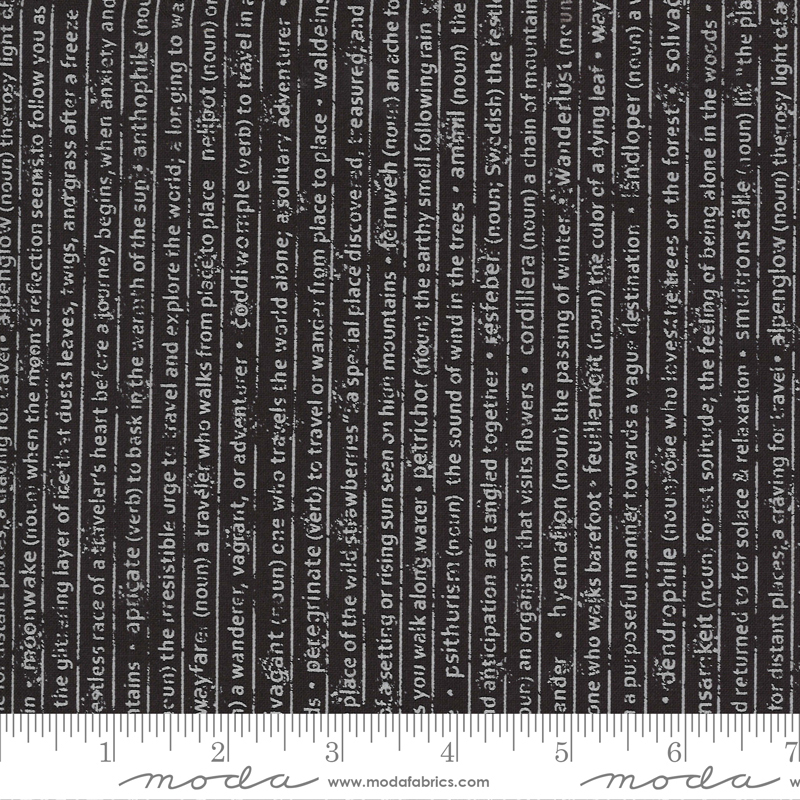 alpenglow (noun) the rosy light
moonwake (noun) when the moon's reflection seems to follow you as
the glittering layer of ice that dusts leaves, twigs, and grass after a freeze
estless race of a traveler's heart before a journey begins, when anxiety and
tains • apricate (verb) to bask in the warmth of the sun • anthophile (nou
oun) the irresistible urge to travel and explore the world; a longing to wa
wayfarer (noun) a traveler who walks from place to place
) a wanderer, vagrant, or adventurer • coddiwomple (verb) to travel in a
vagant (noun) one who travels the world alone; a solitary adventurer •
ds • peregrinate (verb) to travel or wander from place to place • waldein
place of the wild strawberries" a special place discovered, treasured, and
of a setting or rising sun seen on high mountains • fernweh (noun) an ache fo
s you walk along water • petrichor (noun) the earthy smell following rain
• psithurism (noun) the sound of wind in the trees • (noun) the
nd anticipation are tangled together • resfeber (noun; Swedish) the restle
oun) an organism that visits flowers • cordillera (noun) a chain of mountain
ander • hyemation (noun) the passing of winter • Wanderlust (noun
one who walks barefoot • feuillemort (noun) the color of a dying leaf • way
a purposeful manner towards a vague destination • landloper (noun) a v
• dendrophile (noun) one who loves the trees or the forest • solivag
nsamkeit (noun) forest solitude; the feeling of being alone in the woods •
d returned to for solace & relaxation • smultronställe (noun) lit. "the pla
for distant places; a craving for travel • alpenglow (noun) the rosy light of a
1 2 3 4 5 6 7
moda www.modafabrics.com moda